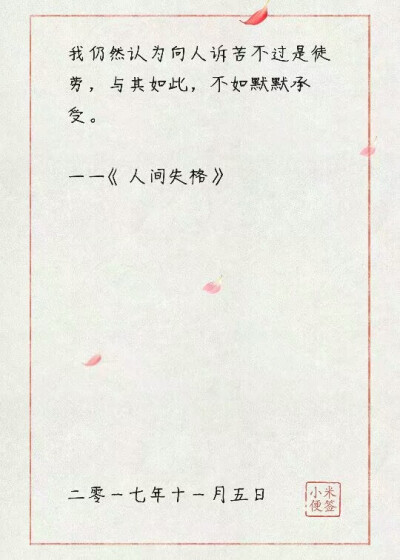 我仍然认为向人诉苦不过是徒
劳，与其如此，不如默默承
受。
一一《人间失格》
二零一七年十一月五日
小米
便签